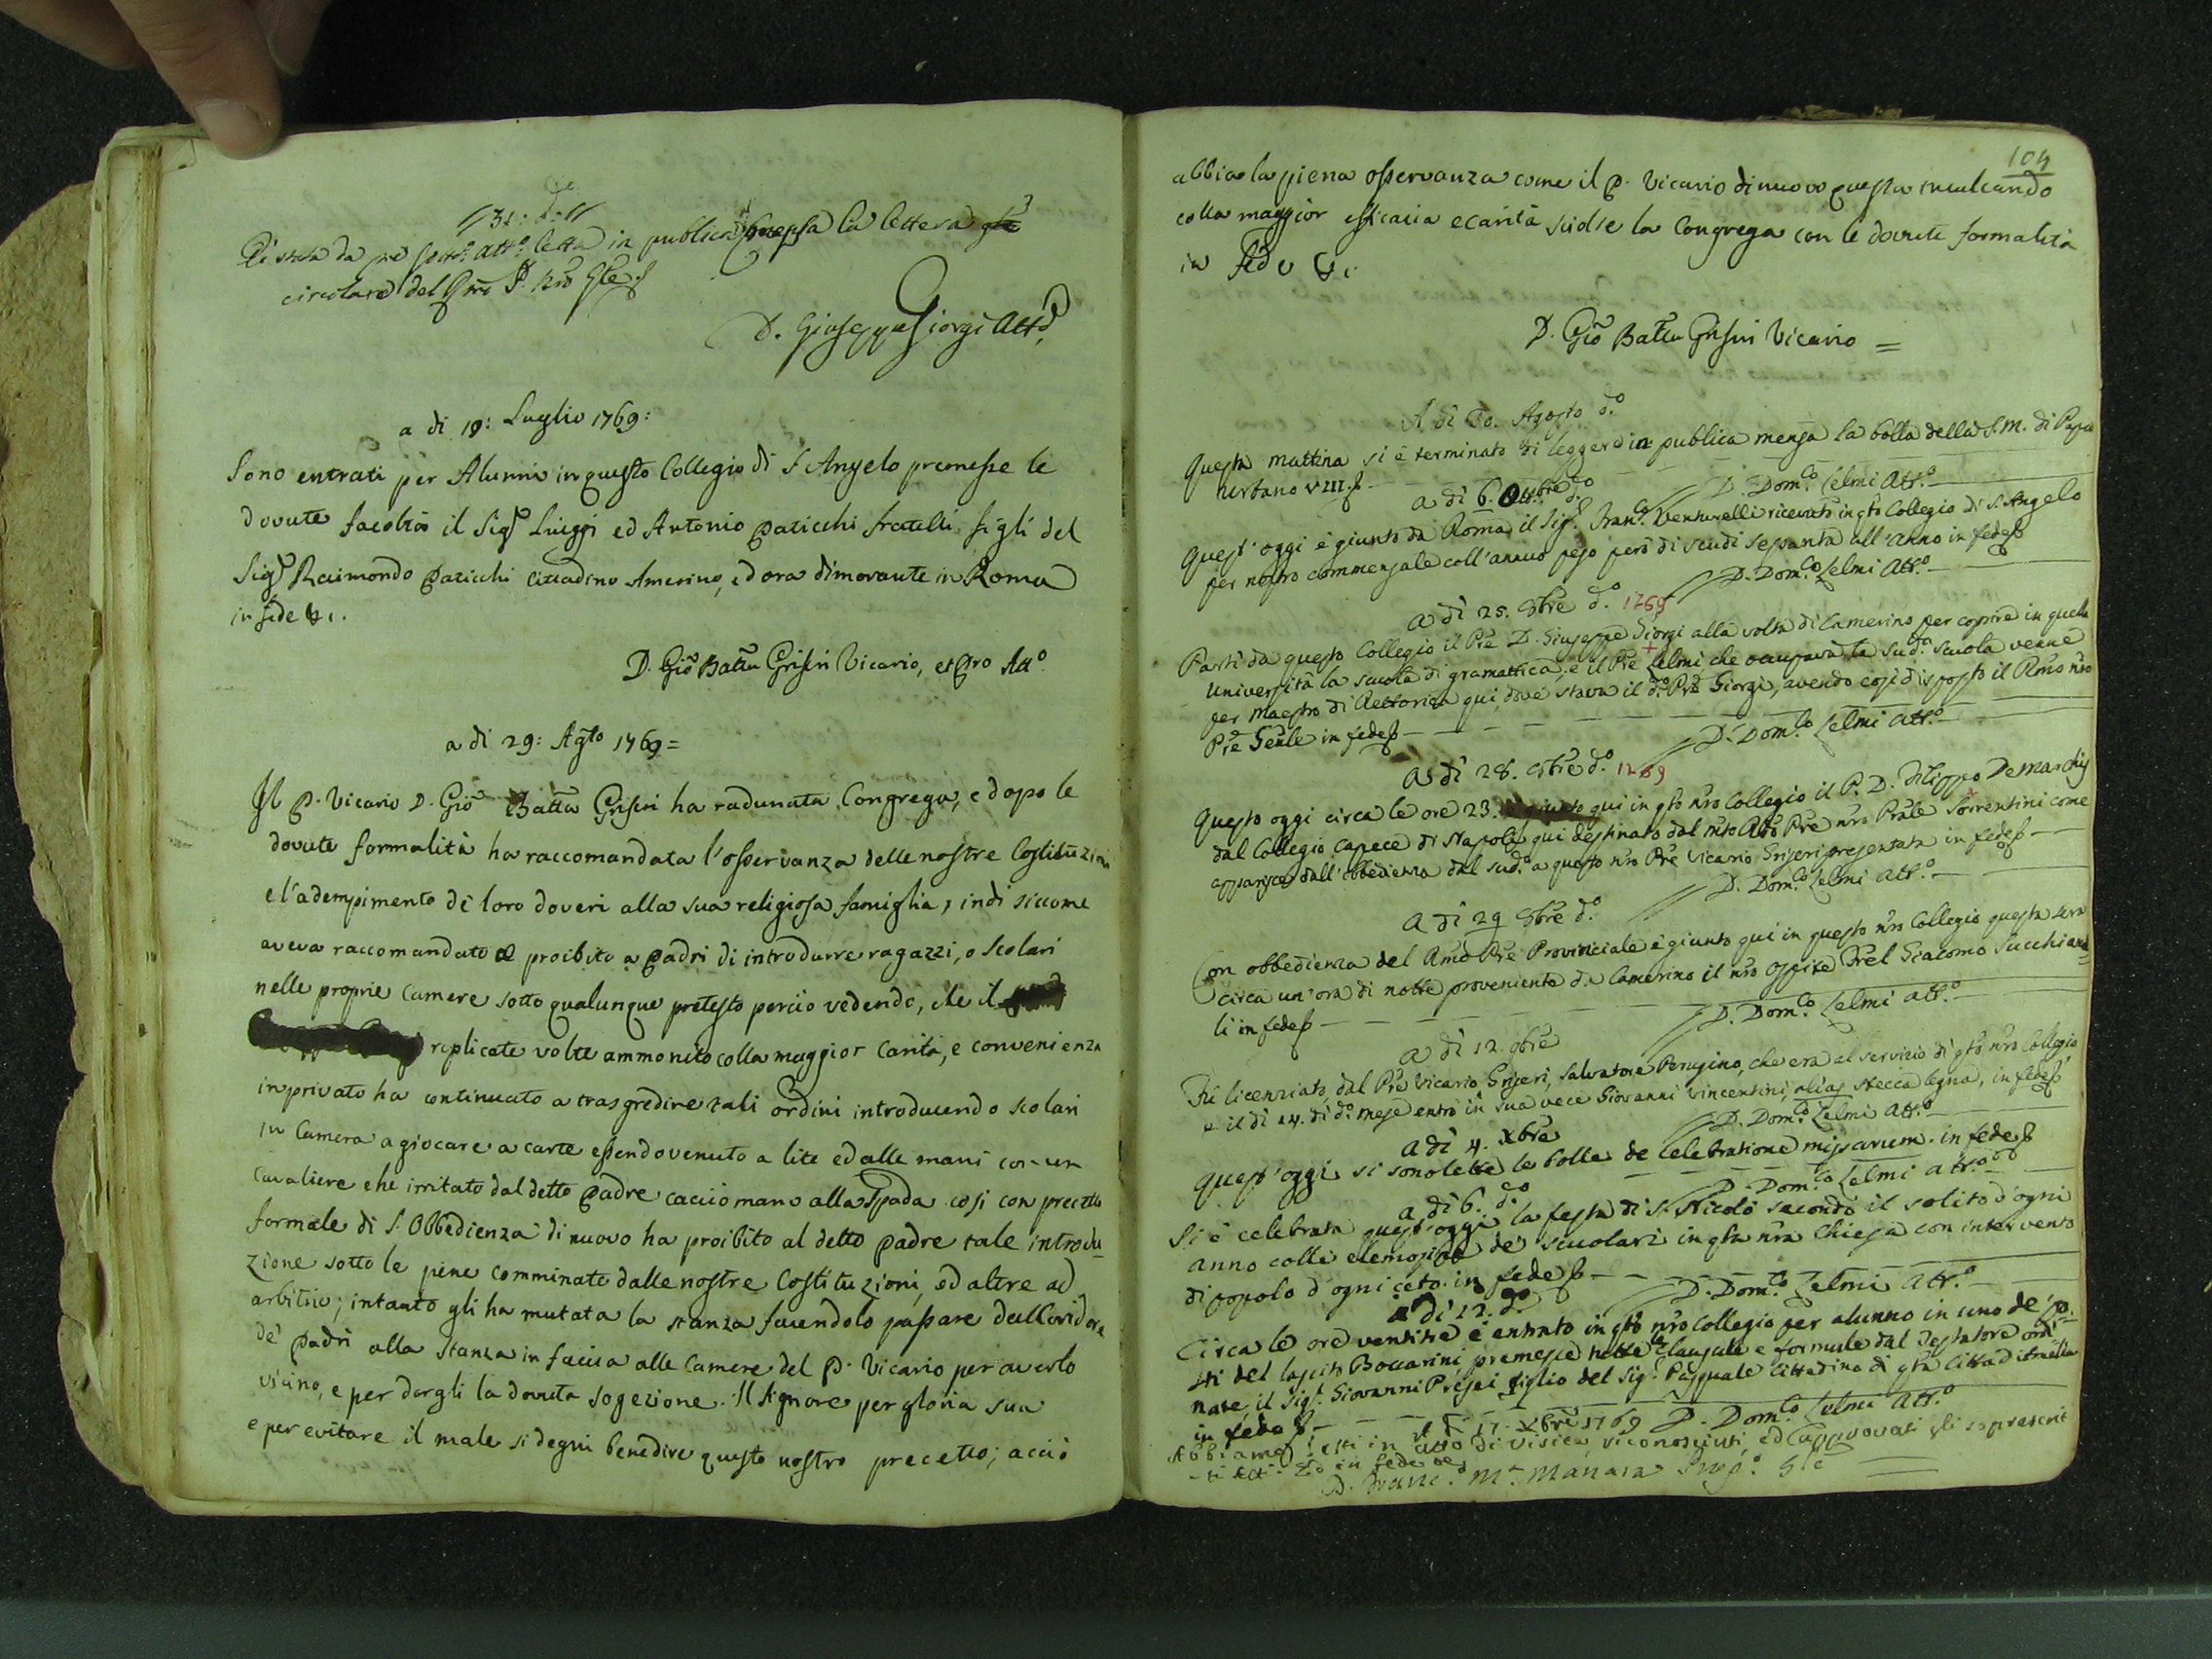 // 31: d.º //
È stata da me sotto: Att.º letta in publica mensa la lettera
circolare del Rmo P. Nro Gle
D. Giuseppe Giorgi Att.º
a di 19: Luglio 1769:
Sono entrati per Alunni in questo Collegio di S. Angelo premesse le
dovute facoltà il Sigr Luiggi ed Antonio Paticchi fratelli figli del
Sigr Raimondo Paticchi Cittadino Amerino, ed ora dimorante in Roma
in fede &c.
D. Gio Batta Griseri Vicario, et Pro Att.º
a di 29: Agto 1769 =
Il P. Vicario D. Gio Batta Griseri ha radunata Congrega, e dopo le
dovute formalità ha raccomandata l'osservanza delle nostre Costituzioni
e l'adempimento de loro doveri alla sua religiosa famiglia, indi siccome
aveva raccomandato e proibito a Padri di introdurre ragazzi, o scolari
nelle proprie Camere sotto qualunque pretesto perciò vedendo, che il
replicate volte ammonito colla maggior Carità, e convenienza
in privato ha continuato a trasgredire tali ordini introducendo scolari
in Camera a giocare a carte essendo venuto a lite ed alle mani con un
Cavaliere che irritato dal detto Padre cacciò mano alla Spada così con precetto
formale di S. Obbedienza di nuovo ha proibito al detto Padre tale introdu-
zione sotto le pene comminate dalle nostre Costituzioni, ed altre ad
arbitrio; intanto gli ha mutata la stanza facendolo passare dal Coridore
de' Padri alla Stanza in faccia alle Camere del P. Vicario per averlo
vicino, e per dargli la dovuta sogezione. Il Signore per gloria sua
e per evitare il male si degni benedire questo nostro precetto; acciò
104
abbia la piena osservanza come il P. Vicario di nuovo questa inculcando
colla maggior efficacia e carità sciolse la Congrega con le dovute formalità
in fede &c.
D. Gio Batta Griseri Vicario =
A di 30. Agosto d.º
Questa mattina si è terminato di leggere in publica mensa la bolla della S.M. di Papa
Urbano VIII.
D. Dom.co Zelmi Att.º
a di 6. Ottbre d.º
Quest'oggi è giunto da Roma il Sigr Franc.º Venturelli ricevuto in qto Collegio di S. Angelo
per nostro commensale coll'annuo peso però di scudi sessanta all'anno in fede
D. Dom.co Zelmi Att.º
a di 25. 8bre d.º 1769
Partì da questo Collegio il Pre D. Giuseppe Giorgi alla volta di Camerino per coprire in quella
Università la scuola di gramattica, e il Pre Zelmi che occupava la sud.ª scuola venne
per Maestro di Rettorica qui, dove stava il d.º Pre Giorgi, avendo così disposto il Rmo nro
Pre Genle in fede
D. Dom.co Zelmi Att.º
a di 28. 8bre d.º 1769
Questo oggi circa le ore 23. giunto qui in qto nro Collegio il P. D. Filippo De Marchis
dal Collegio Capece di Napoli qui destinato dal nro Pre nro Prale Sorrentini come
apparisce dall'obbedienza dal sud.º a questo nro Pre Vicario Griseri presentata in fede
D. Dom.co Zelmi Att.º
a di 29 8bre d.º
Con obbedienza del Rmo Pre Provinciale è giunto qui in questo nro Collegio questa sera
circa un'ora di notte proveniente da Camerino il nro Ospite Frel Giacomo Sacchia
li in fede
D. Dom.co Zelmi Att.º
a di 12. 9bre
Fù licenziato dal Pre Vicario Griseri, Salvatore Perugino, che era al servizio di qto nro Collegio
e il dì 14. di d.º mese entrò in sua vece Giovanni Vincentini, alias Steccalegna, in fede
D. Dom.co Zelmi Att.º
a di 4. Xbre
Quest'oggi si sono lette le bolle de Celebratione missarum. in fede
D. Dom.co Zelmi Att.º
a di 6. d.º
Si è celebrata quest'oggi la festa di S. Nicolò secondo il solito d'ogni
anno colle elemosine de' scuolari in qta nra Chiesa con intervento
di popolo d'ogni ceto. in fede
D. Dom.co Zelmi Att.º
a di 12. d.º
Circa le ore ventitre è entrato in qto nro Collegio per alunno in uno de' po-
sti del lascito Boccarini, premesse tutte le clausule e formule dal Testatore ordi-
nate il Sigr Giovanni Presei figlio del Sigr Pasquale Cittadino di qta Città d'Amelia
in fede
D. Dom.co Zelmi Att.º
A di 17. Xbre 1769
Abbiamo letti in atto di visita, riconosciuti, ed approvati gli soprascrit
-ti Atti. Ed in fede
D. Franc.º Mª Manara Prep.º Gle